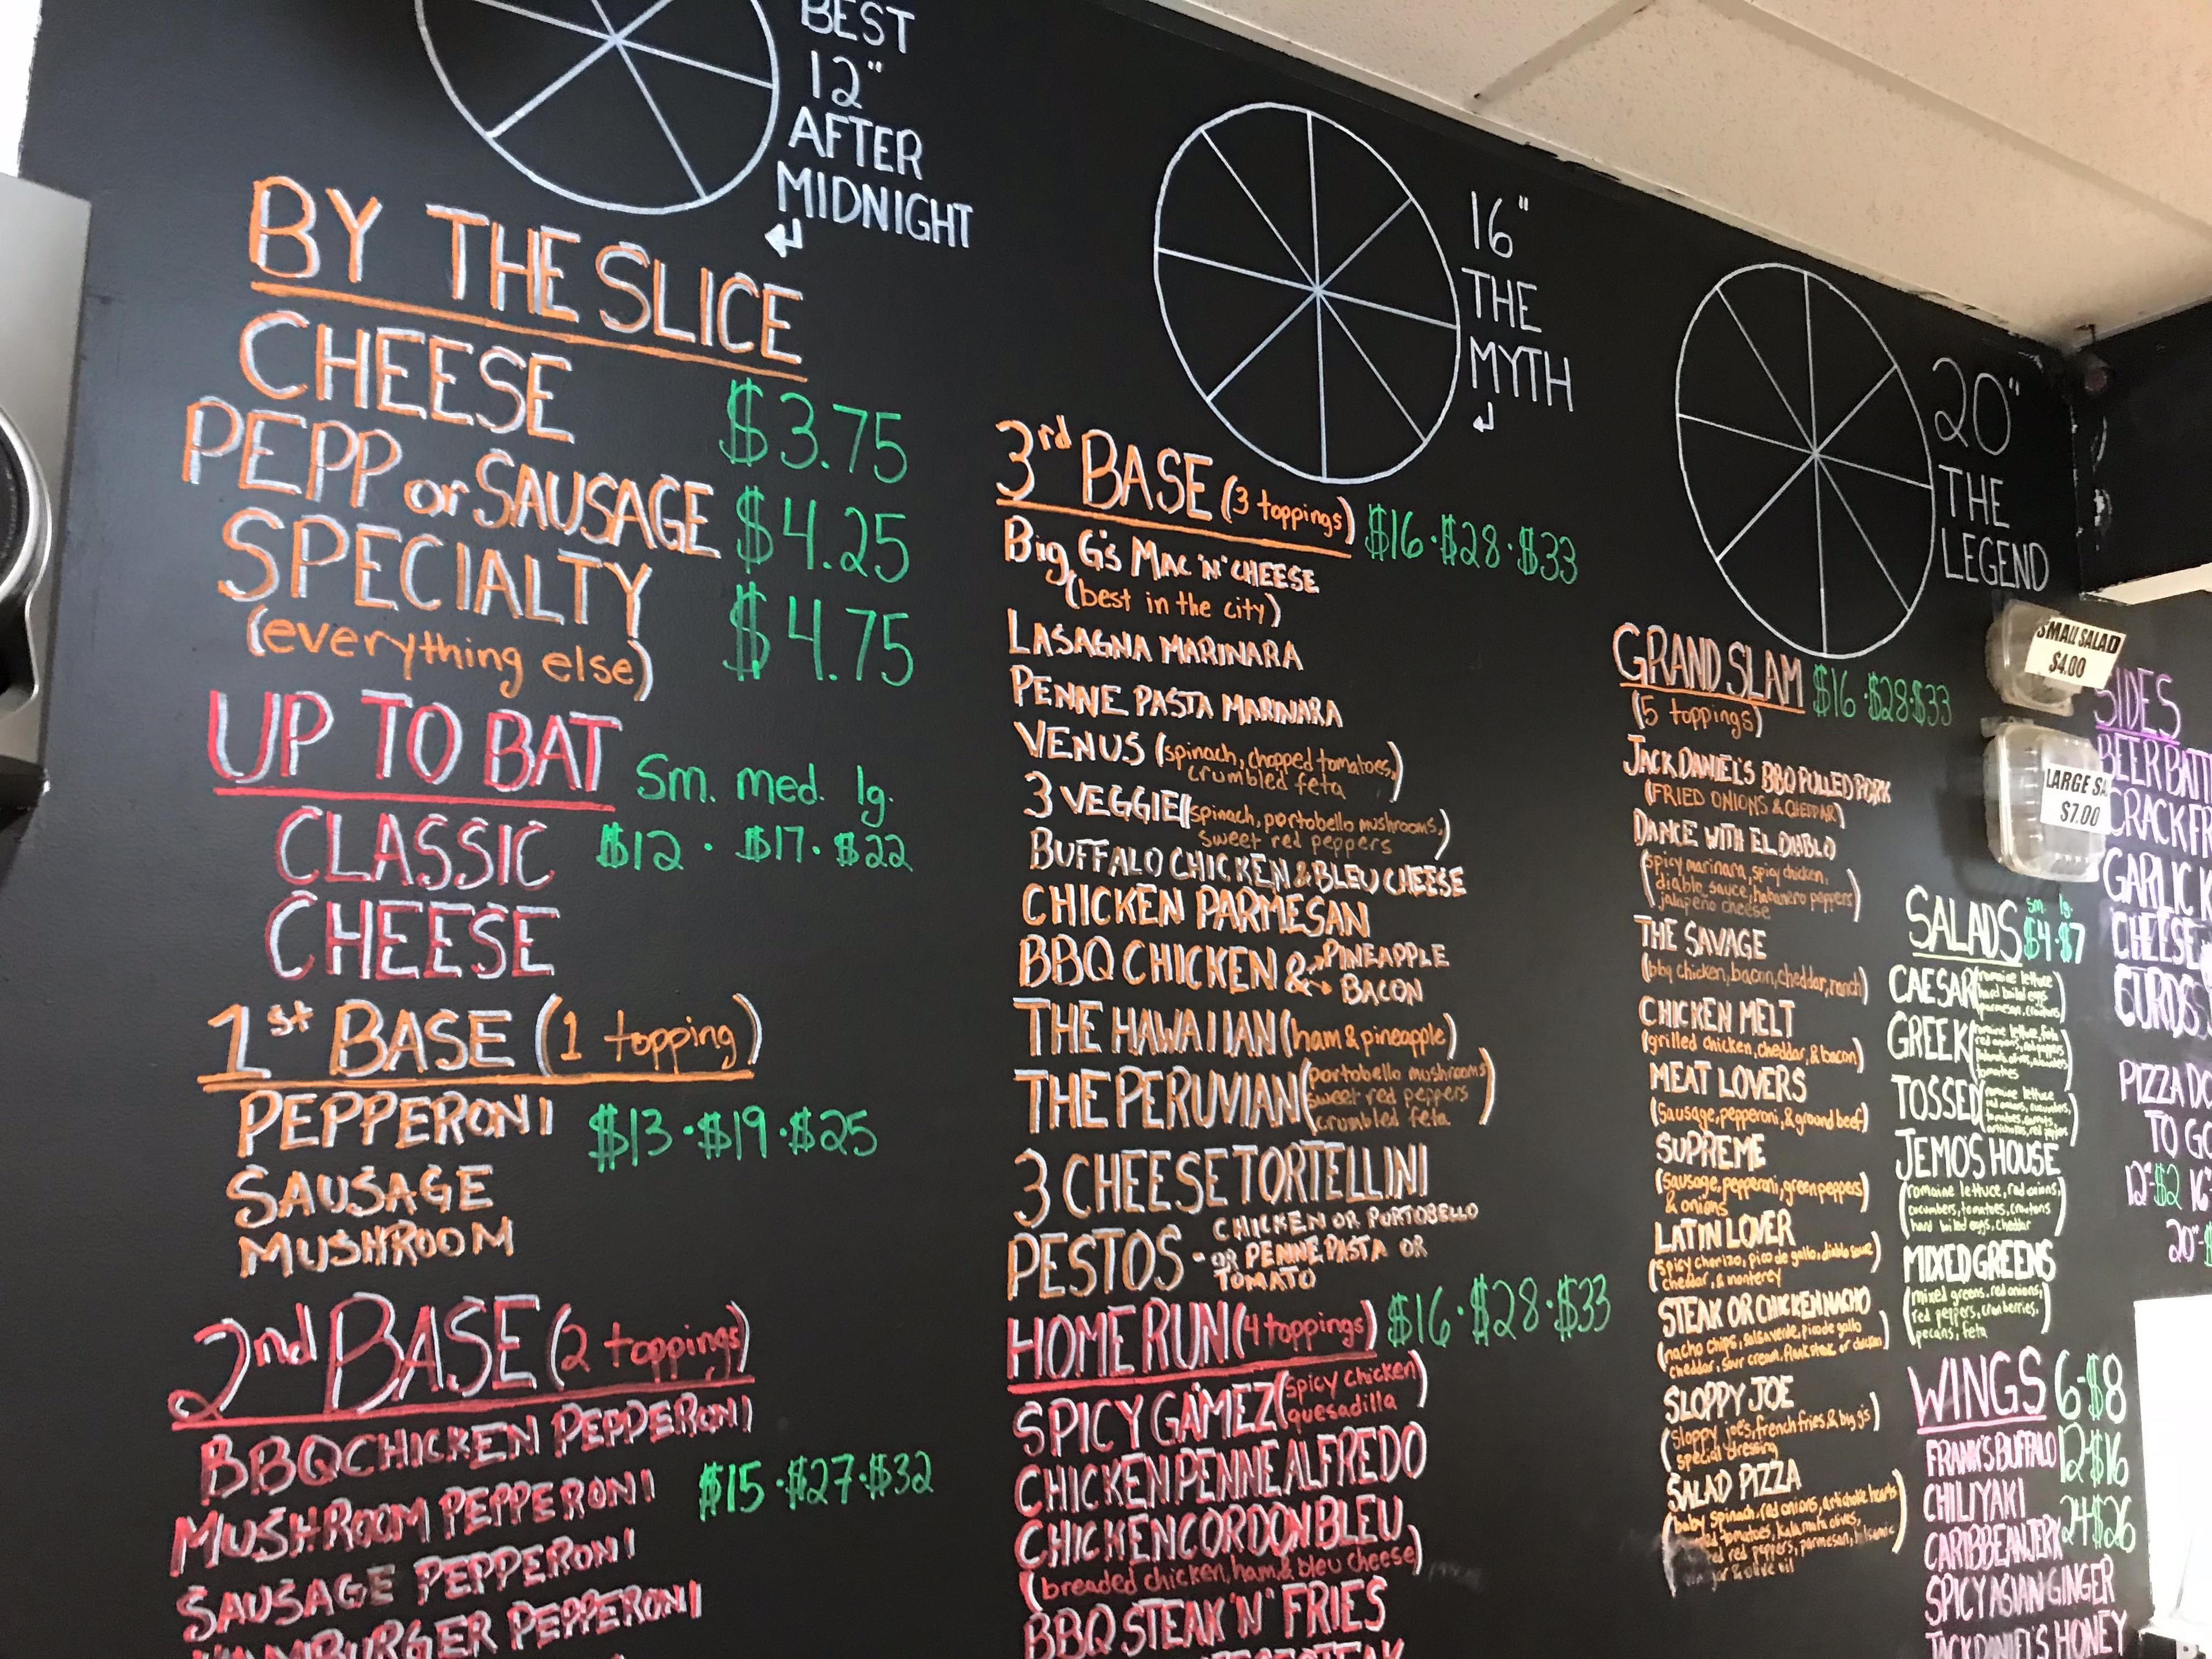 BEST
12"
AFTER
MIDNIGHT
BY THE SLICE
CHEESE $3.75
PEPP or SAUSAGE $4.25
SPECIALTY $4.75
(everything else)
UP TO BAT Sm. med. lg.
CLASSIC $12 · $17 · $22
CHEESE
1st BASE (1 topping)
PEPPERONI $13 · $19 · $25
SAUSAGE
MUSHROOM
2nd BASE (2 toppings)
BBQ CHICKEN PEPPERONI
MUSHROOM PEPPERONI $15 · $27 · $32
SAUSAGE PEPPERONI
HAMBURGER PEPPERONI
16"
THE
MYTH
3rd BASE (3 toppings) $16 · $28 · $33
Big G's MAC 'N' CHEESE
(best in the city)
LASAGNA MARINARA
PENNE PASTA MARINARA
VENUS (spinach, chopped tomatoes,
crumbled feta)
3 VEGGIE (spinach, portobello mushrooms,
sweet red peppers)
BUFFALO CHICKEN & BLEU CHEESE
CHICKEN PARMESAN
BBQ CHICKEN & → PINEAPPLE
→ BACON
THE HAWAIIAN (ham & pineapple)
THE PERUVIAN (portobello mushrooms
sweet red peppers
crumbled feta)
3 CHEESE TORTELLINI
PESTOS - CHICKEN OR PORTOBELLO
OR PENNE PASTA OR
TOMATO
HOME RUN (4 toppings) $16 · $28 · $33
SPICY GAMEZ (spicy chicken
quesadilla)
CHICKEN PENNE ALFREDO
CHICKEN CORDON BLEU
(breaded chicken, ham, & bleu cheese)
BBQ STEAK 'N' FRIES
20"
THE
LEGEND
GRAND SLAM $16 · $28 · $33
(5 toppings)
JACK DANIEL'S BBQ PULLED PORK
(FRIED ONIONS & CHEDDAR)
DANCE WITH EL DIABLO
(spicy marinara, spicy chicken,
diablo sauce, habanero peppers
jalapeno cheese)
THE SAVAGE
(bbq chicken, bacon, cheddar, ranch)
CHICKEN MELT
(grilled chicken, cheddar, & bacon)
MEAT LOVERS
(Sausage, pepperoni, & ground beef)
SUPREME
(Sausage, pepperoni, green peppers
& onions)
LATIN LOVER
(spicy chorizo, pico de gallo, diablo sauce
cheddar, & monterey)
STEAK OR CHICKEN NACHO
(nacho chips, salsa verde, pico de gallo
cheddar, sour cream, flank steak or chicken)
SLOPPY JOE
(Sloppy joe's, french fries, & big g's
special dressing)
SALAD PIZZA
(baby spinach, red onions, artichoke hearts
tomatoes, kalamata olives,
red peppers, parmesan, balsamic
& olive oil)
SMALL SALAD
$4.00
LARGE SA
$7.00
SALADS Sm. lg.
$4 · $7
CAESAR (romaine lettuce
hard boiled eggs
parmesan, croutons)
GREEK (romaine lettuce, feta
red onions, red peppers
tomatoes)
TOSSED (romaine lettuce
red onions, cucumbers,
tomatoes, carrots,
artichokes, red peppers)
JEMO'S HOUSE
(romaine lettuce, red onions,
cucumbers, tomatoes, croutons
hard boiled eggs, cheddar)
MIXED GREENS
(mixed greens, red onions,
red peppers, cranberries,
pecans, feta)
WINGS 6-$8
FRANK'S BUFFALO 12-$16
CHILIYAKI
CARIBBEAN JERK 24-$26
SPICY ASIAN GINGER
JACK DANIEL'S HONEY
SIDES
BEER BATT
CRACK FR
GARLIC K
CHEESE
CURDS
PIZZA DO
TO GO
12"-$2 16"
20"-$